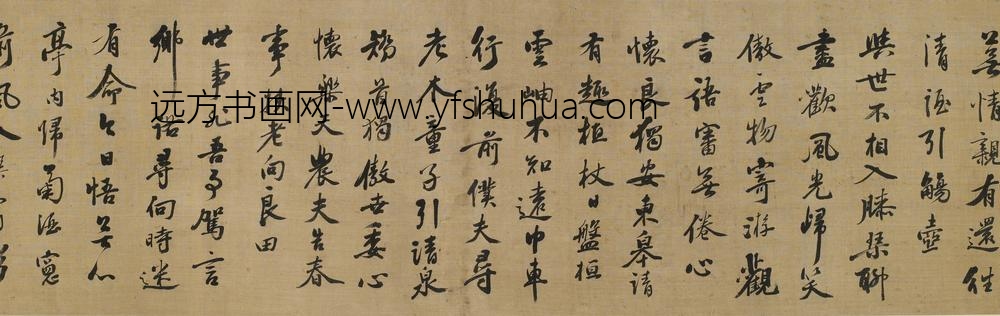 蕪情親有還往
清酒引觴壺
與世不相入膝琴聊
盡歡風光歸笑
傲雲物寄游觀
言語審無倦心
懷良獨安東皋清
有趣植杖日盤桓
雲岫不知遠巾車
行復前僕夫尋
老木童子引清泉
矯首獨傲世委心
懷樂天農夫告春
事扶老向良田
世事非吾事駕言
鄉路尋向時迷
有命今日悟無心
亭內歸菊酒窗
前風入琴
远方书画网-www.yfshuhua.com